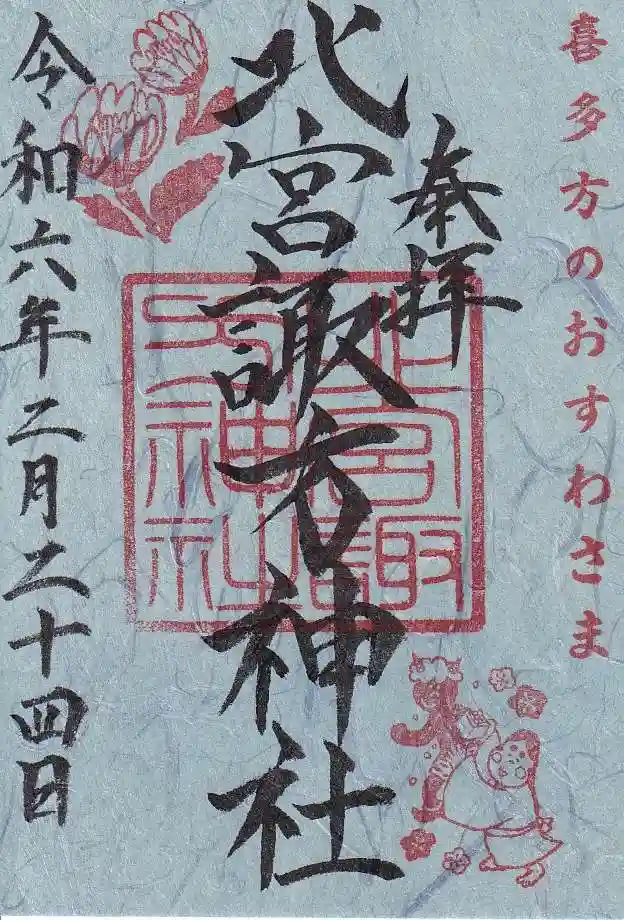 喜多方のおすわさま
奉拝
北宮諏方神社
北宮諏
方神社
令和六年二月二十四日